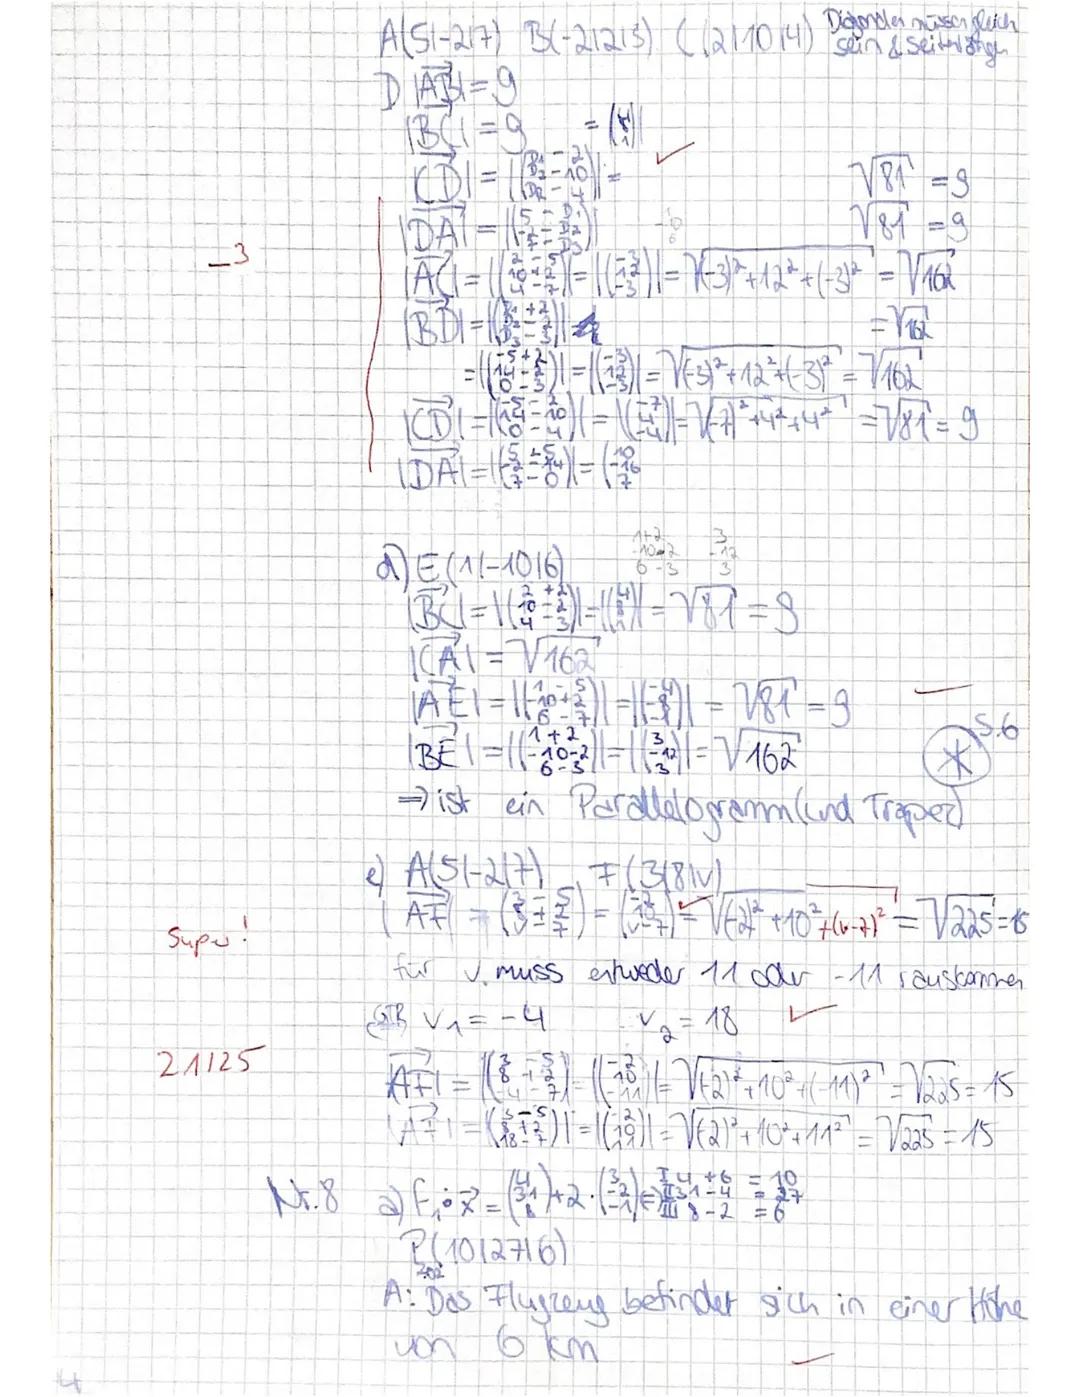 A(5|-2|7) B(-2|2|3) C(2|10|4) Diagonalen müssen gleich
sein & Seitenlängen
D |AB| = 9
|BC| = 9
|CD| = |(D₁ - 2, D₂ - 10, D₃ - 4)| = ✓ √81 = 9
|DA| = |(5 - D₁, -2 - D₂, 7 - D₃)| √81 = 9
-3
|AC| = |(2 - 5, 10 + 2, 4 - 7)| = |(-3, 12, -3)| = √(-3)² + 12² + (-3)² = √162
|BD| = |(D₁ + 2, D₂ - 2, D₃ - 3)| = √162
= |(-5 + 2, 14 - 2, 0 - 3)| = |(-3, 12, -3)| = √(-3)² + 12² + (-3)² = √162
|CD| = |(-5 - 2, 14 - 10, 0 - 4)| = |(-7, 4, -4)| = √(-7)² + 4² + 4² = √81 = 9
|DA| = |(5 + 5, -2 - 14, 7 - 0)| = (10, -16, 7)
1+2 3
-10-2 -12
6-3 3
d) E(1|-10|6)
|BC| = |(2 + 2, 10 - 2, 4 - 3)| = |(4, 8, 1)| = √81 = 9
|CA| = √162
|AE| = |(1 - 5, -10 + 2, 6 - 7)| = |(-4, -8, -1)| = √81 = 9
|BE| = |(1 + 2, -10 - 2, 6 - 3)| = |(3, -12, 3)| = √162
* S.6
⇒ ist ein Parallelogramm (und Trapez)
e) A(5|-2|7) F(3|8|v)
|AF| = (3 - 5, 8 + 2, v - 7) = (-2, 10, v-7) ✓ = √(-2)² + 10² + (v-7)² = √225 = 15
Super!
für v muss entweder 11 oder -11 rauskommen
GTR v₁ = -4 v₂ = 18 ✓
21/25
|AF| = |(3 - 5, 8 + 2, -4 - 7)| = |(-2, 10, -11)| = √(-2)² + 10² + (-11)² = √225 = 15
|AF| = |(3 - 5, 8 + 2, 18 - 7)| = |(-2, 10, 11)| = √(-2)² + 10² + 11² = √225 = 15
Nr. 8 a) F₁: x = (4, 31, 8) + 2 · (3, -2, -1) ⇒ I 4 + 6 = 10
II 31 - 4 = 27
III 8 - 2 = 6
P(10|27|6)
A: Das Flugzeug befindet sich in einer Höhe
von 6 km
4